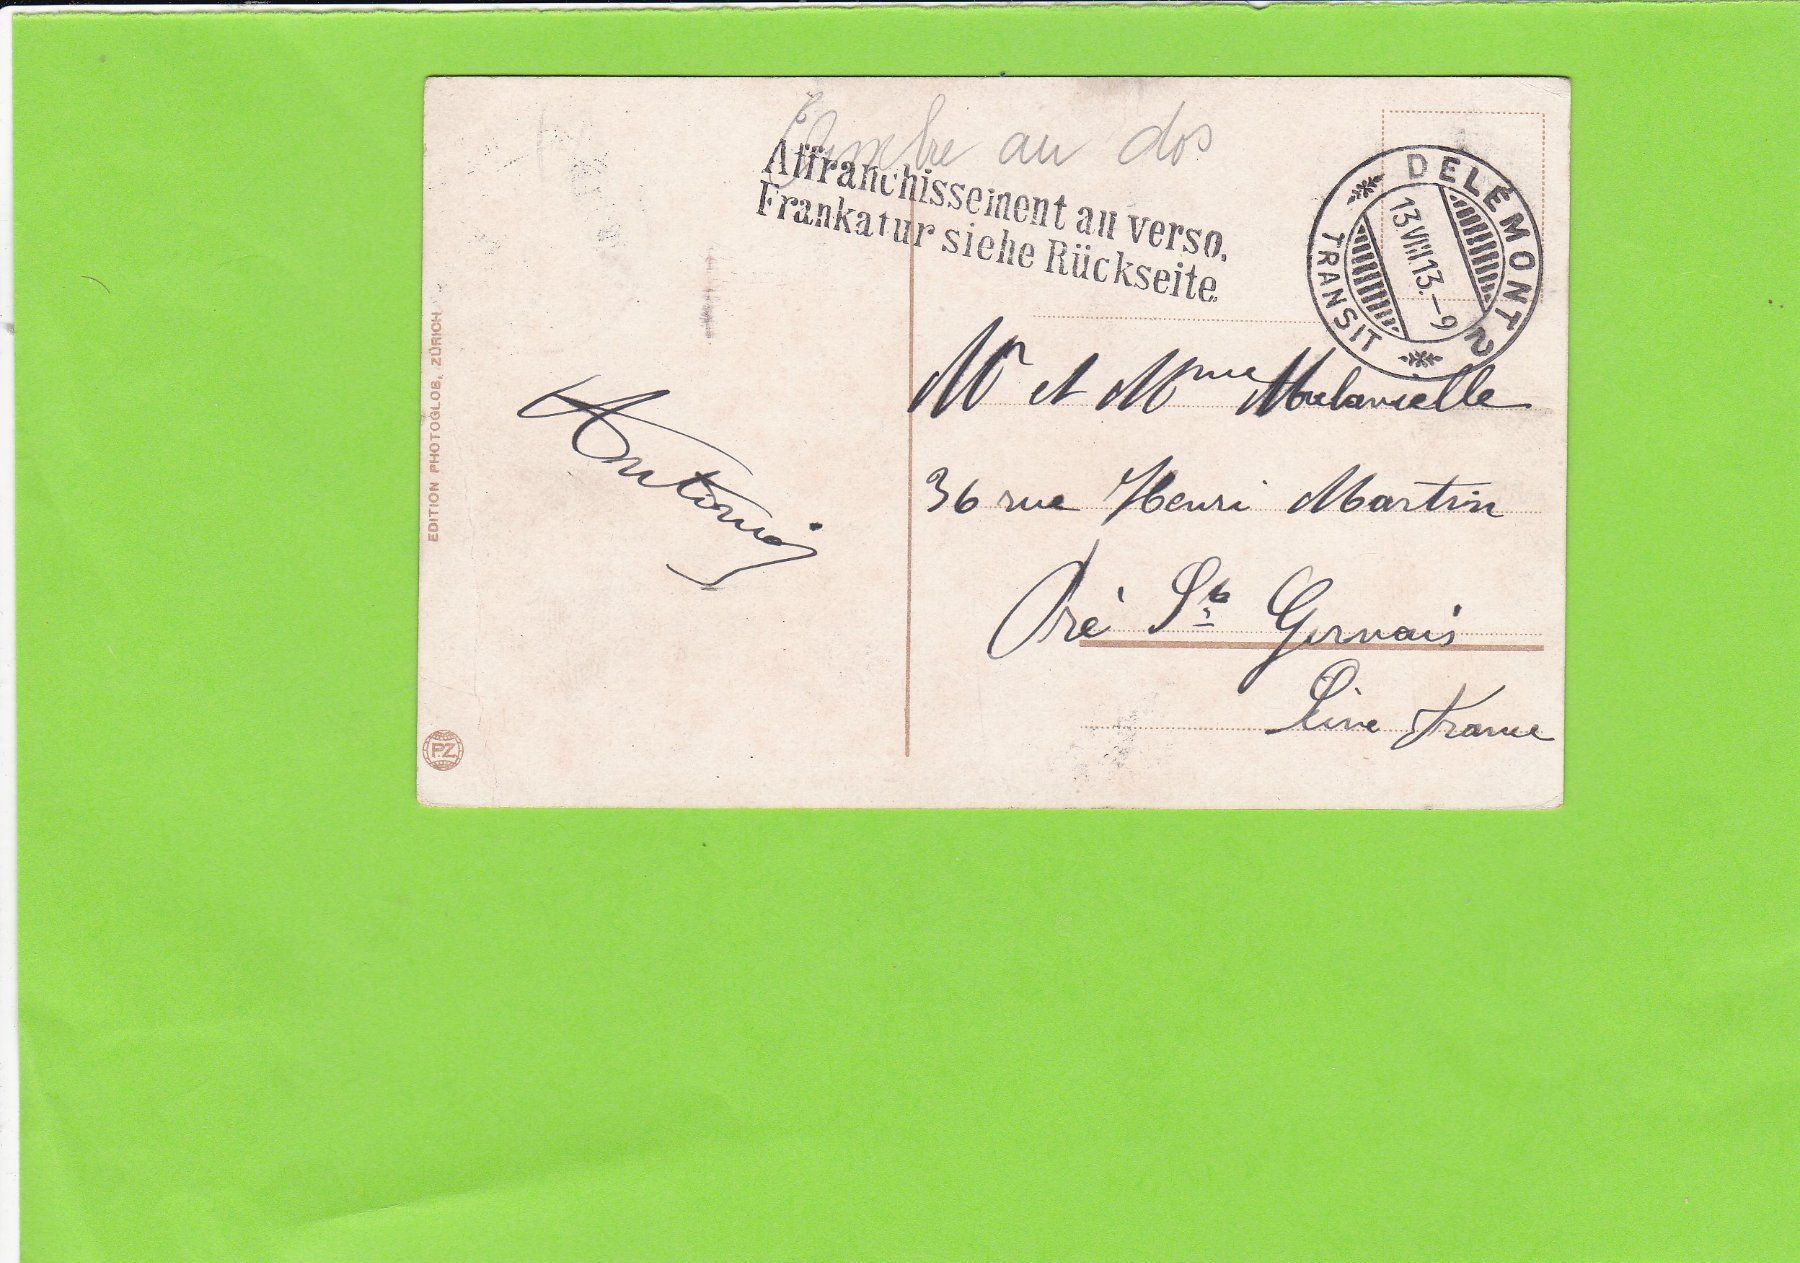 au dos
Affranchissement au verso.
Frankatur siehe Rückseite.
DELÉMONT 2
13 VIII 13.-9
TRANSIT
Mr et Mme
36 rue Henri Martin
Pré St Gervais
Seine France
EDITION PHOTOGLOB, ZÜRICH
P.Z.